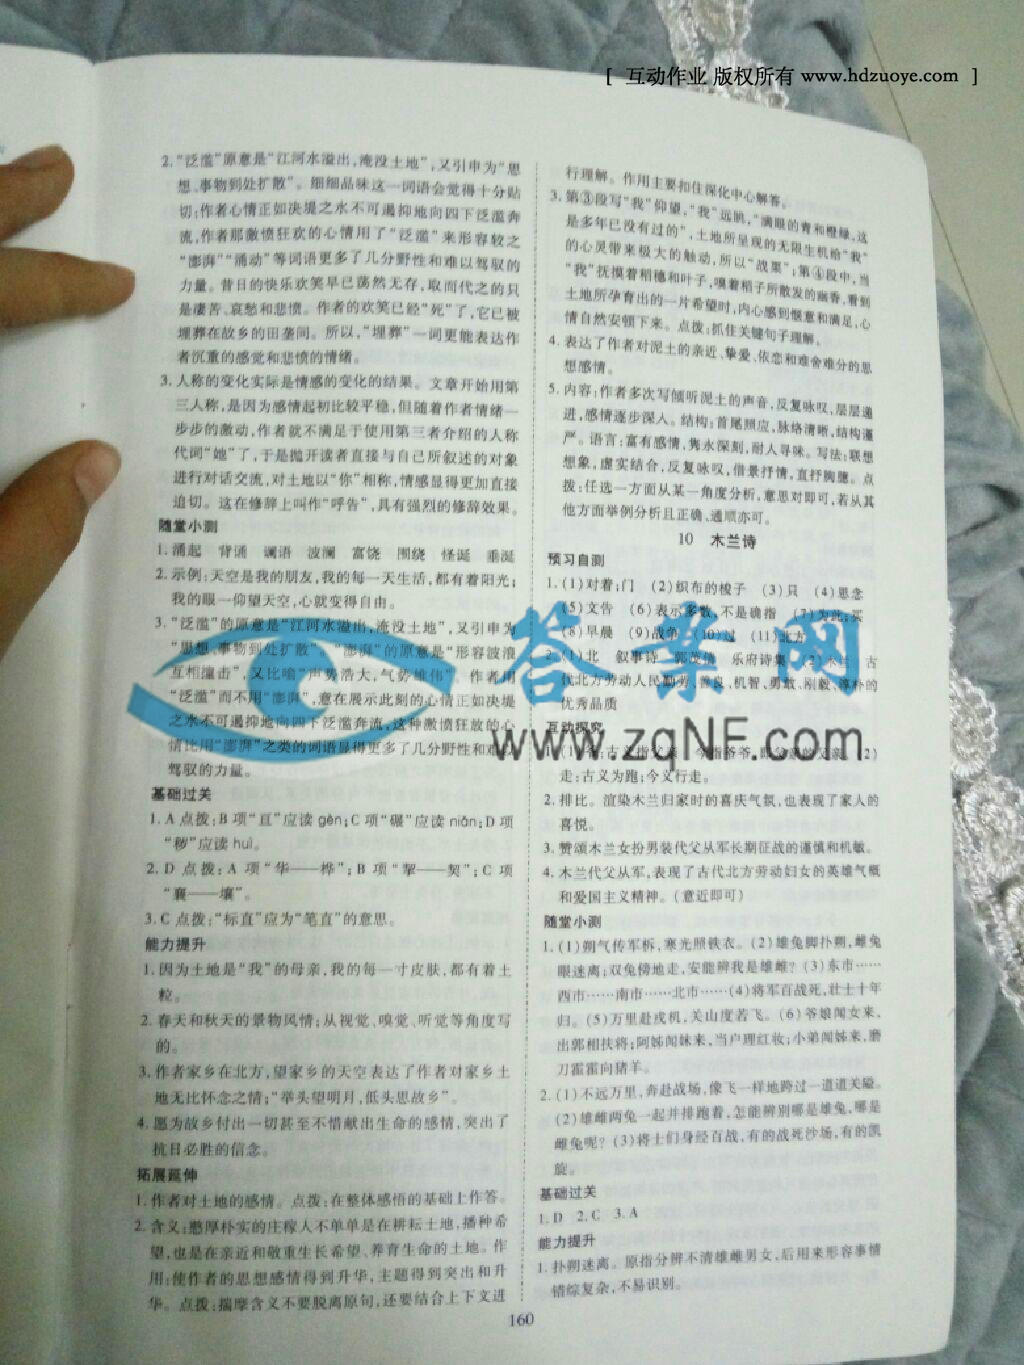 [ 互动作业 版权所有 www.hdzuoye.com ]
2. “泛滥”原意是“江河水溢出,淹没土地”,又引申为“思
想、事物到处扩散”。细细品味这一词语会觉得十分贴
切:作者心情正如决堤之水不可遏抑地向四下泛滥奔
流,作者那激愤狂欢的心情用了“泛滥”来形容较之
“澎湃”“涌动”等词语更多了几分野性和难以驾驭的
力量。昔日的快乐欢笑早已荡然无存,取而代之的只
是凄苦、哀愁和悲愤。作者的欢笑已经“死”了,它已被
埋葬在故乡的田垄间。所以,“埋葬”一词更能表达作
者沉重的感觉和悲愤的情绪。
3. 人称的变化实际是情感的变化的结果。文章开始用第
三人称,是因为感情起初比较平稳,但随着作者情绪一
步步的激动,作者就不满足于使用第三者介绍的人称
代词“她”了,于是抛开读者直接与自己所叙述的对象
进行对话交流,对土地以“你”相称,情感显得更加直接
迫切。这在修辞上叫作“呼告”,具有强烈的修辞效果。
随堂小测
1. 涌起 背诵 谰语 波澜 富饶 围绕 怪诞 垂涎
2. 示例:天空是我的朋友,我的每一天生活,都有着阳光;
我的眼一仰望天空,心就变得自由。
3. “泛滥”的原意是“江河水溢出,淹没土地”,又引申为
“思想、事物到处扩散”。“澎湃”的原意是“形容波浪
互相撞击”,又比喻“声势浩大,气势雄伟”。作者用
“泛滥”而不用“澎湃”,意在展示此刻的心情正如决堤
之水不可遏抑地向四下泛滥奔流,这种激愤狂放的心
情比用“澎湃”之类的词语显得更多了几分野性和难以
驾驭的力量。
基础过关
1. A 点拨:B 项“亘”应读 gèn;C 项“碾”应读 niǎn;D 项
“秽”应读 huì。
2. D 点拨:A 项“华——桦”;B 项“挈——契”;C 项
“襄——壤”。
3. C 点拨:“标直”应为“笔直”的意思。
能力提升
1. 因为土地是“我”的母亲,我的每一寸皮肤,都有着土
粒。
2. 春天和秋天的景物风情;从视觉、嗅觉、听觉等角度写
的。
3. 作者家乡在北方,望家乡的天空表达了作者对家乡土
地无比怀念之情;“举头望明月,低头思故乡”。
4. 愿为故乡付出一切甚至不惜献出生命的感情,突出了
抗日必胜的信念。
拓展延伸
1. 作者对土地的感情。点拨:在整体感悟的基础上作答。
2. 含义:憨厚朴实的庄稼人不单单是在耕耘土地,播种希
望,也是在亲近和敬重生长希望、养育生命的土地。作
用:使作者的思想感情得到升华,主题得到突出和升
华。点拨:揣摩含义不要脱离原句,还要结合上下文进
行理解。作用主要扣住深化中心解答。
3. 第③段写“我”仰望,“我”远眺,“满眼的青和橙绿,这
是多年已没有过的”,土地所呈现的无限生机给“我”
的心灵带来极大的触动,所以“战栗”;第④段中,当
“我”抚摸着稻穗和叶子,嗅着稻子所散发的幽香,看到
土地所孕育出的一片希望时,内心感到惬意和满足,心
情自然安顿下来。点拨:抓住关键句子理解。
4. 表达了作者对泥土的亲近、挚爱、依恋和难舍难分的思
想感情。
5. 内容:作者多次写倾听泥土的声音,反复咏叹,层层递
进,感情逐步深入。结构:首尾照应,脉络清晰,结构谨
严。语言:富有感情,隽永深刻,耐人寻味。写法:联想
想象,虚实结合,反复咏叹,借景抒情,直抒胸臆。点
拨:任选一方面从某一角度分析,意思对即可,若从其
他方面举例分析且正确、通顺亦可。
10 木兰诗
预习自测
1. (1)对着;门 (2)织布的梭子 (3)只 (4)思念
(5)文告 (6)表示多数,不是确指 (7)为此;买
(8)早晨 (9)战争 (10)过 (11)北方
2. (1)北 叙事诗 郭茂倩 乐府诗集 (2)木兰 古
代北方劳动人民勤劳、善良、机智、勇敢、刚毅、淳朴的
优秀品质
互动探究
1. (1)爷:古义指父亲;今指爷爷,即父亲的父亲。(2)
走:古义为跑;今义行走。
2. 排比。渲染木兰归家时的喜庆气氛,也表现了家人的
喜悦。
3. 赞颂木兰女扮男装代父从军长期征战的谨慎和机敏。
4. 木兰代父从军,表现了古代北方劳动妇女的英雄气概
和爱国主义精神。(意近即可)
随堂小测
1. (1)朔气传军柝,寒光照铁衣。(2)雄兔脚扑朔,雌兔
眼迷离;双兔傍地走,安能辨我是雄雌?(3)东市……
西市……南市……北市……(4)将军百战死,壮士十年
归。(5)万里赴戎机,关山度若飞。(6)爷娘闻女来,
出郭相扶将;阿姊闻妹来,当户理红妆;小弟闻姊来,磨
刀霍霍向猪羊。
2. (1)不远万里,奔赴战场,像飞一样地跨过一道道关隘。
(2)雄雌两兔一起并排跑着,怎能辨别哪是雄兔,哪是
雌兔呢?(3)将士们身经百战,有的战死沙场,有的凯
旋。
基础过关
1. D 2. C 3. A
能力提升
1. 扑朔迷离。原指分辨不清雄雌男女,后用来形容事情
错综复杂,不易识别。
160
答案网
www.zqNF.com